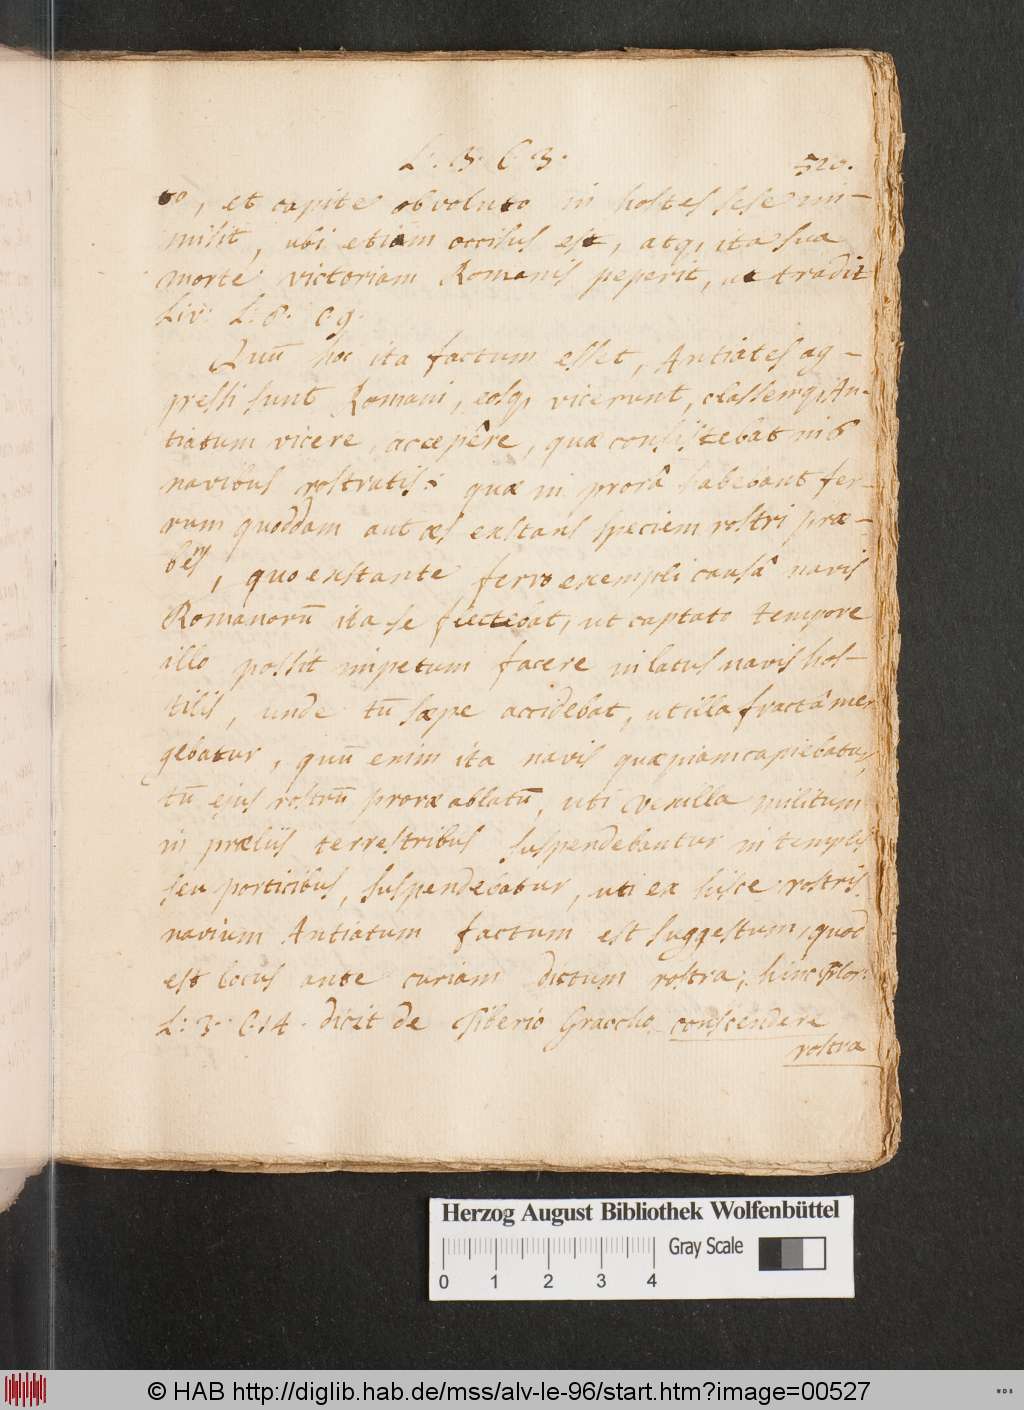 L: 3. C. 3. 520.
to, et capite obvoluto in hostes sese im-
misit, ubi etiam occisus est, atq, ita sua
morte victoriam Romanis peperit, ut tradit
Liv: L: 8. C. 9.
Quū hoc ita factum esset, Antiates ag-
pressi sunt Romani, eosq, vicerunt, classemq, An-
tiatum vicere, accepêre, quæ consistebat in 6
navibus rostratis: quæ in prorâ habebant fer-
rum quoddam aut æs exstans speciem rostri præ-
bens, quo exstante ferro exempli causâ navis
Romanorū ita se flectebat, ut captato tempore
illo possit impetum facere in latus navis hos-
tilis, unde tū sæpe accidebat, ut illa fractâ mer
gebatur, quū enim ita navis quæpiam capiebatur,
tū ejus rostrū proræ ablatū, uti vexilla militum
in præliis terrestribus suspendebantur in templis
seu porticibus, suspendebatur, uti ex hisce rostris
navium Antiatum factum est suggestum, quod
est locus ante curiam dictum rostra; hinc Flor:
L: 3. C. 14. dicit de Tiberio Graccho conscendere
rostra
Herzog August Bibliothek Wolfenbüttel
Gray Scale
0 1 2 3 4
© HAB http://diglib.hab.de/mss/alv-le-96/start.htm?image=00527